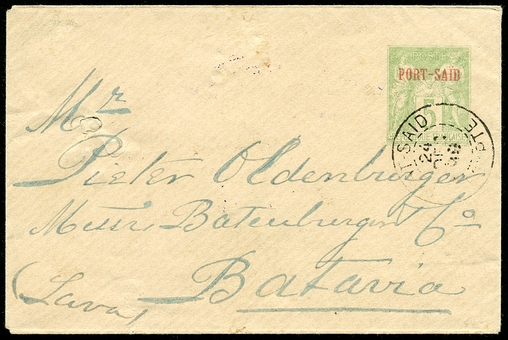 PORT-SAÏD
5
T SAID
PTE
24
Mr
Pieter Oldenburger
Messrs Batenburger & Co
Batavia
(Java)